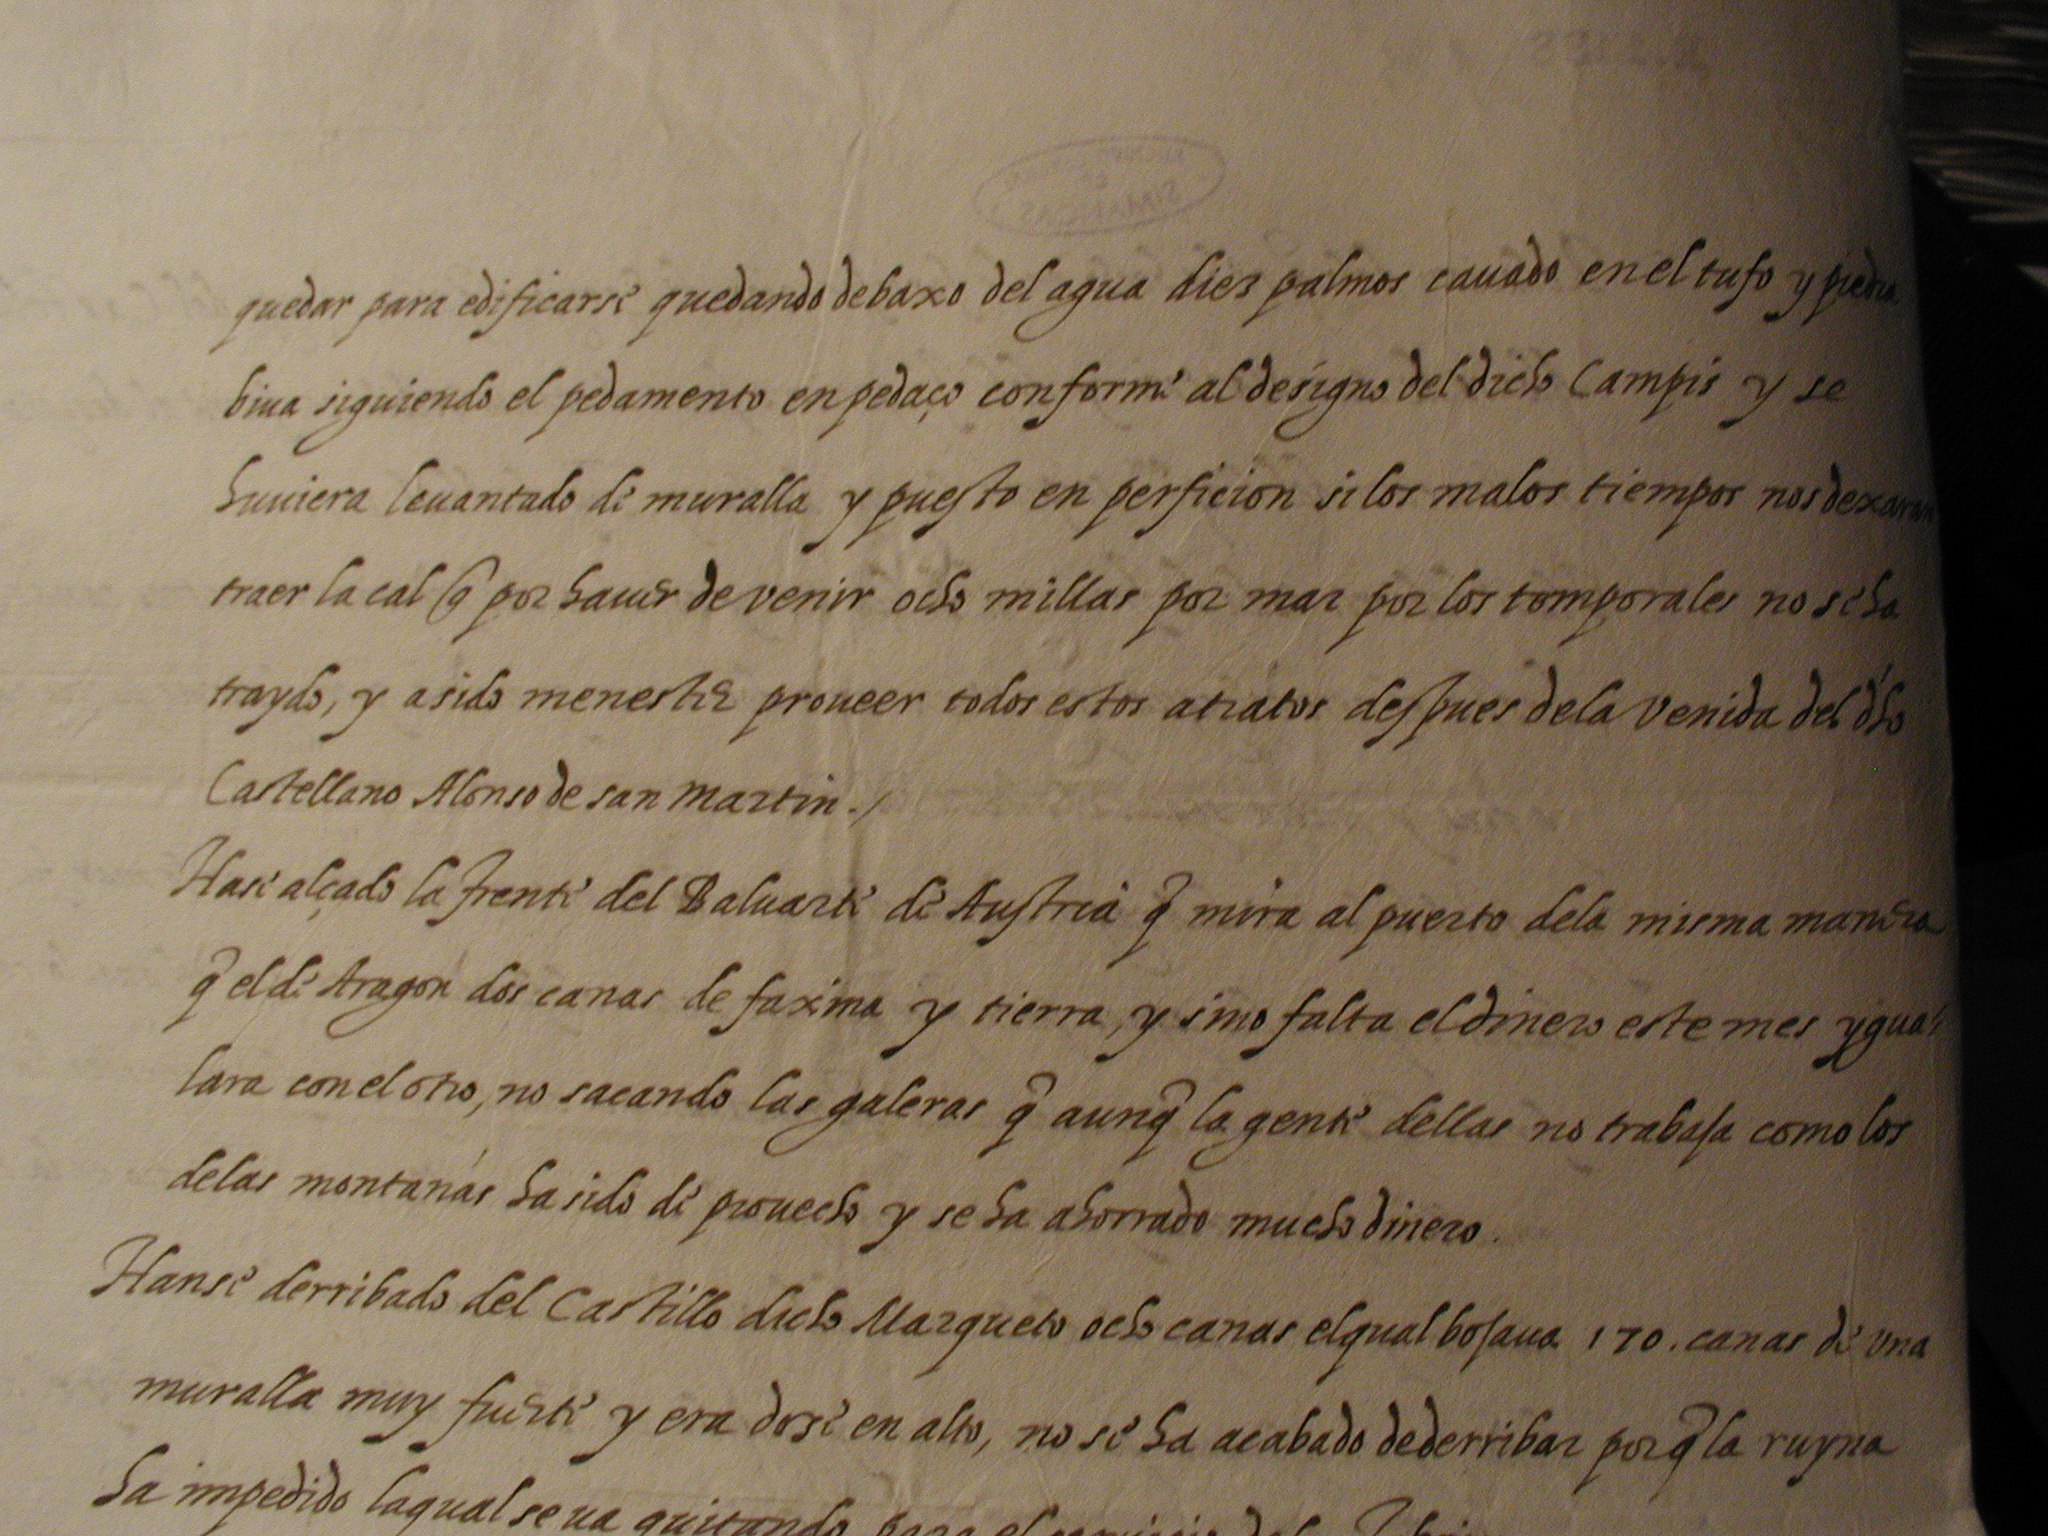 quedar para edificarse quedando debaxo del agua diez palmos cauado en el tufo y piedra
biua siguiendo el pedamento en pedaço conforme al designo del dicho Campis y se
huuiera leuantado de muralla y puesto en perficion si los malos tiempos nos dexaran
traer la cal q̃ por hauer de venir ocho millas por mar por los temporales no se ha
traydo, y a sido menester proueer todos estos atratos despues de la venida del dho
Castellano Alonso de san Martin ./
Hase alçado la frente del Baluarte de Austria q̃ mira al puerto dela misma manera
q̃ el de Aragon dos canas de faxina y tierra, y sino falta el dinero este mes ygua-
lara con el otro, no sacando las galeras q̃ aunq̃ la gente dellas no trabaja como los
delas montanas ha sido de prouecho y se ha ahorrado mucho dinero.
Hanse derribado del Castillo dicho Marqueto ocho canas el qual bojaua 170. canas de una
muralla muy fuerte y era dose en alto, no se ha acabado de derribar porq̃ la ruyna
ha impedido laqual se ua quitando para el
SIMANCAS